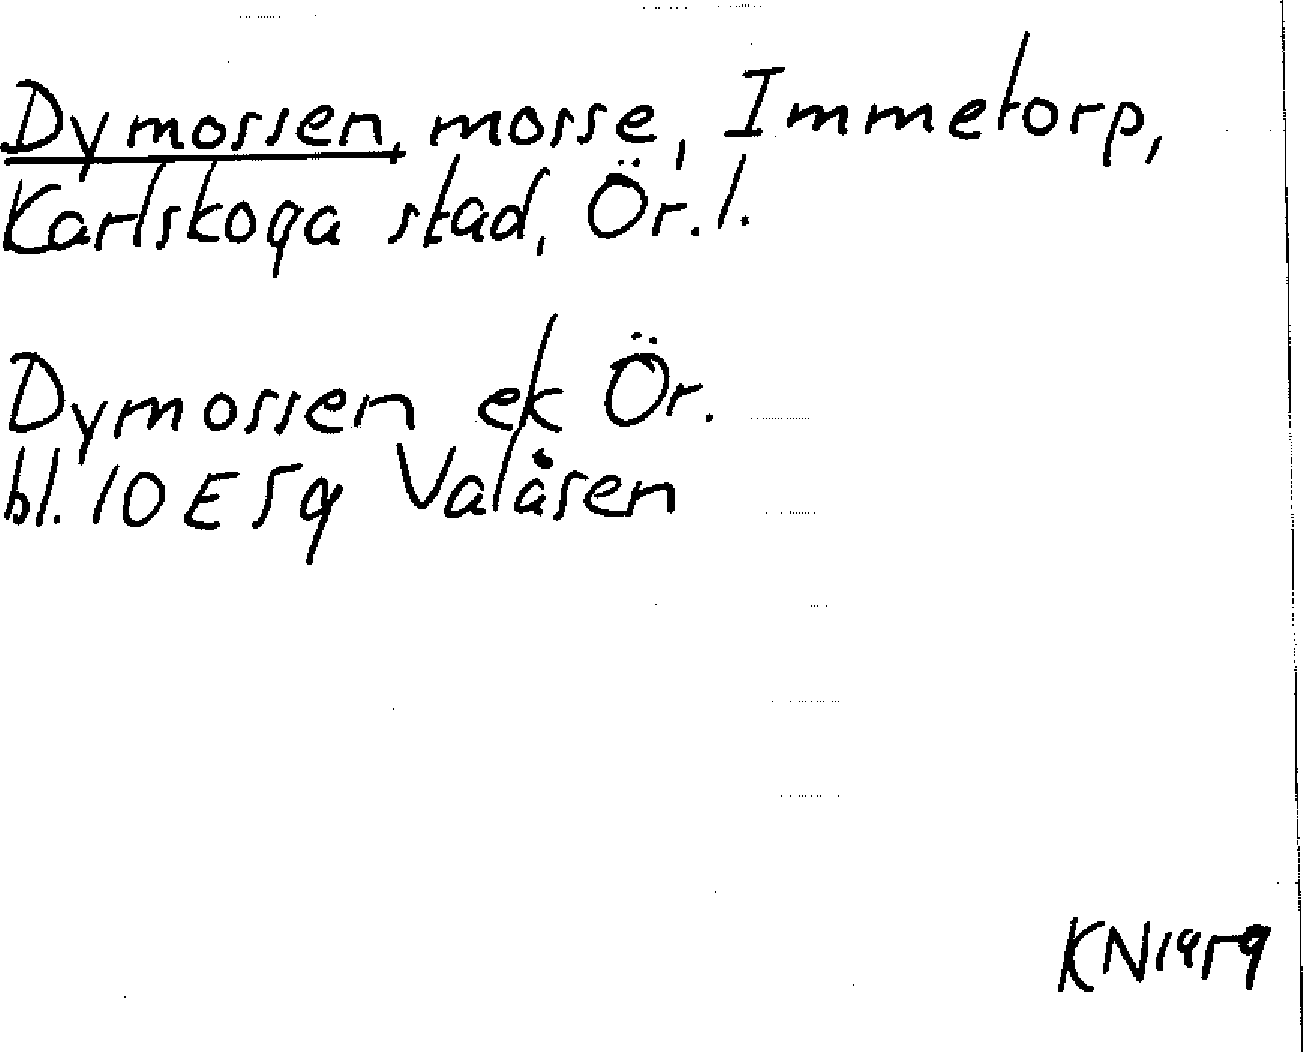 Dymossen, mosse, Immetorp,
Karlskoga stad, Ör. l.
Dymossen ek Ör.
bl. 10 E 5g Valåsen
KN1959